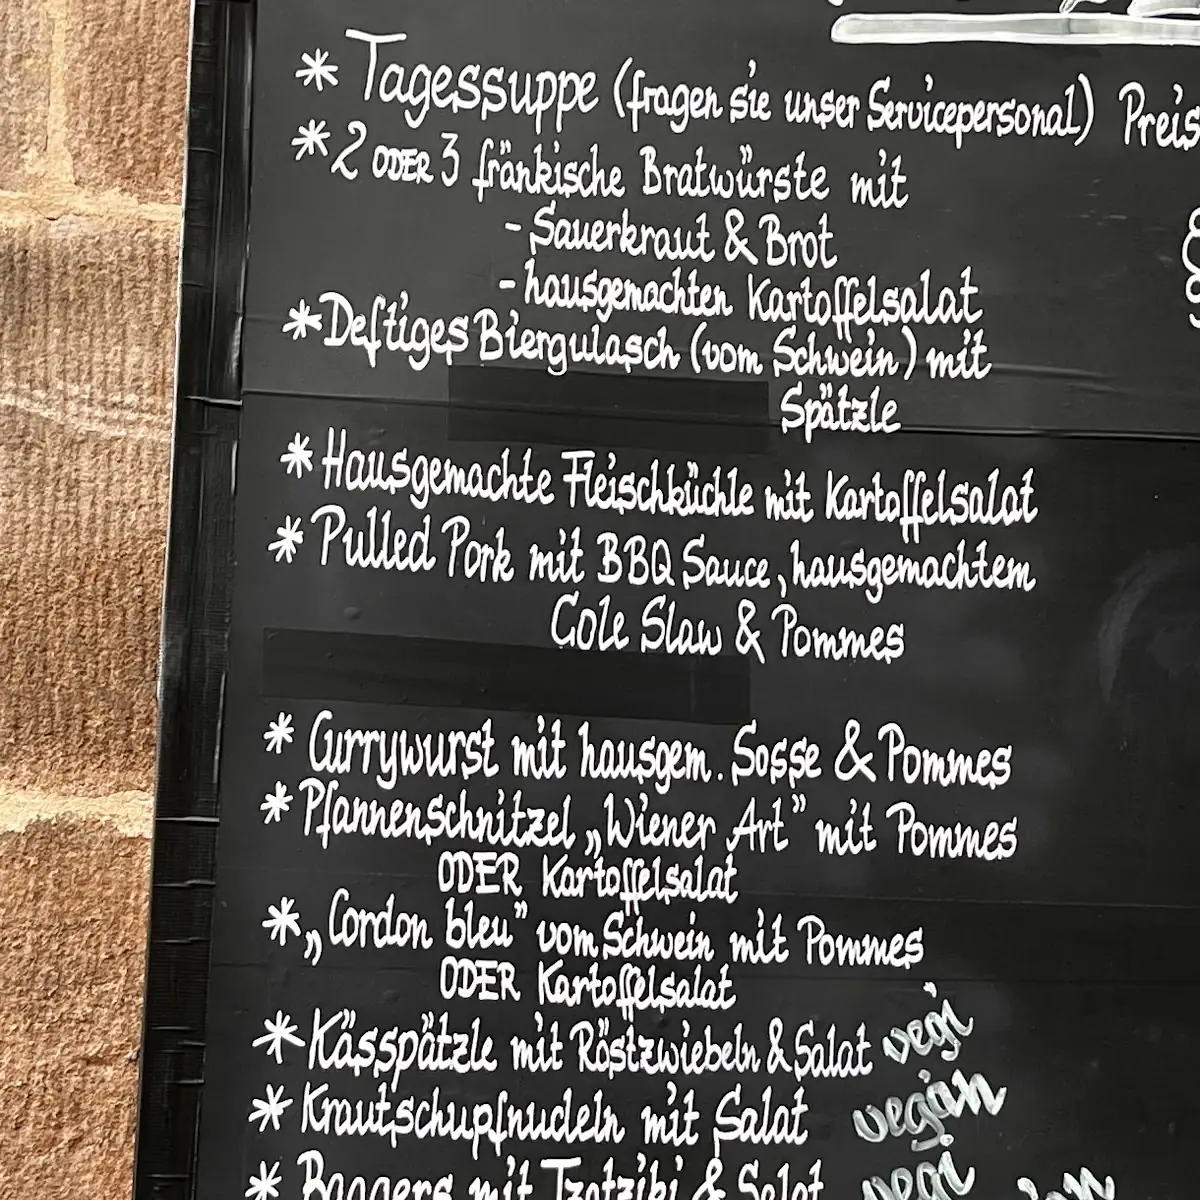 * Tagessuppe (fragen sie unser Servicepersonal) Preis
* 2 ODER 3 fränkische Bratwürste mit
- Sauerkraut & Brot
- hausgemachten Kartoffelsalat
* Deftiges Biergulasch (vom Schwein) mit
Spätzle
* Hausgemachte Fleischküchle mit Kartoffelsalat
* Pulled Pork mit BBQ Sauce, hausgemachtem
Cole Slaw & Pommes
* Currywurst mit hausgem. Sosse & Pommes
* Pfannenschnitzel „Wiener Art" mit Pommes
ODER Kartoffelsalat
* „Cordon bleu" vom Schwein mit Pommes
ODER Kartoffelsalat
* Kässpätzle mit Röstzwiebeln & Salat vegi
* Krautschupfnudeln mit Salat vegan
* Baggers mit Tzatziki & Salat vegi